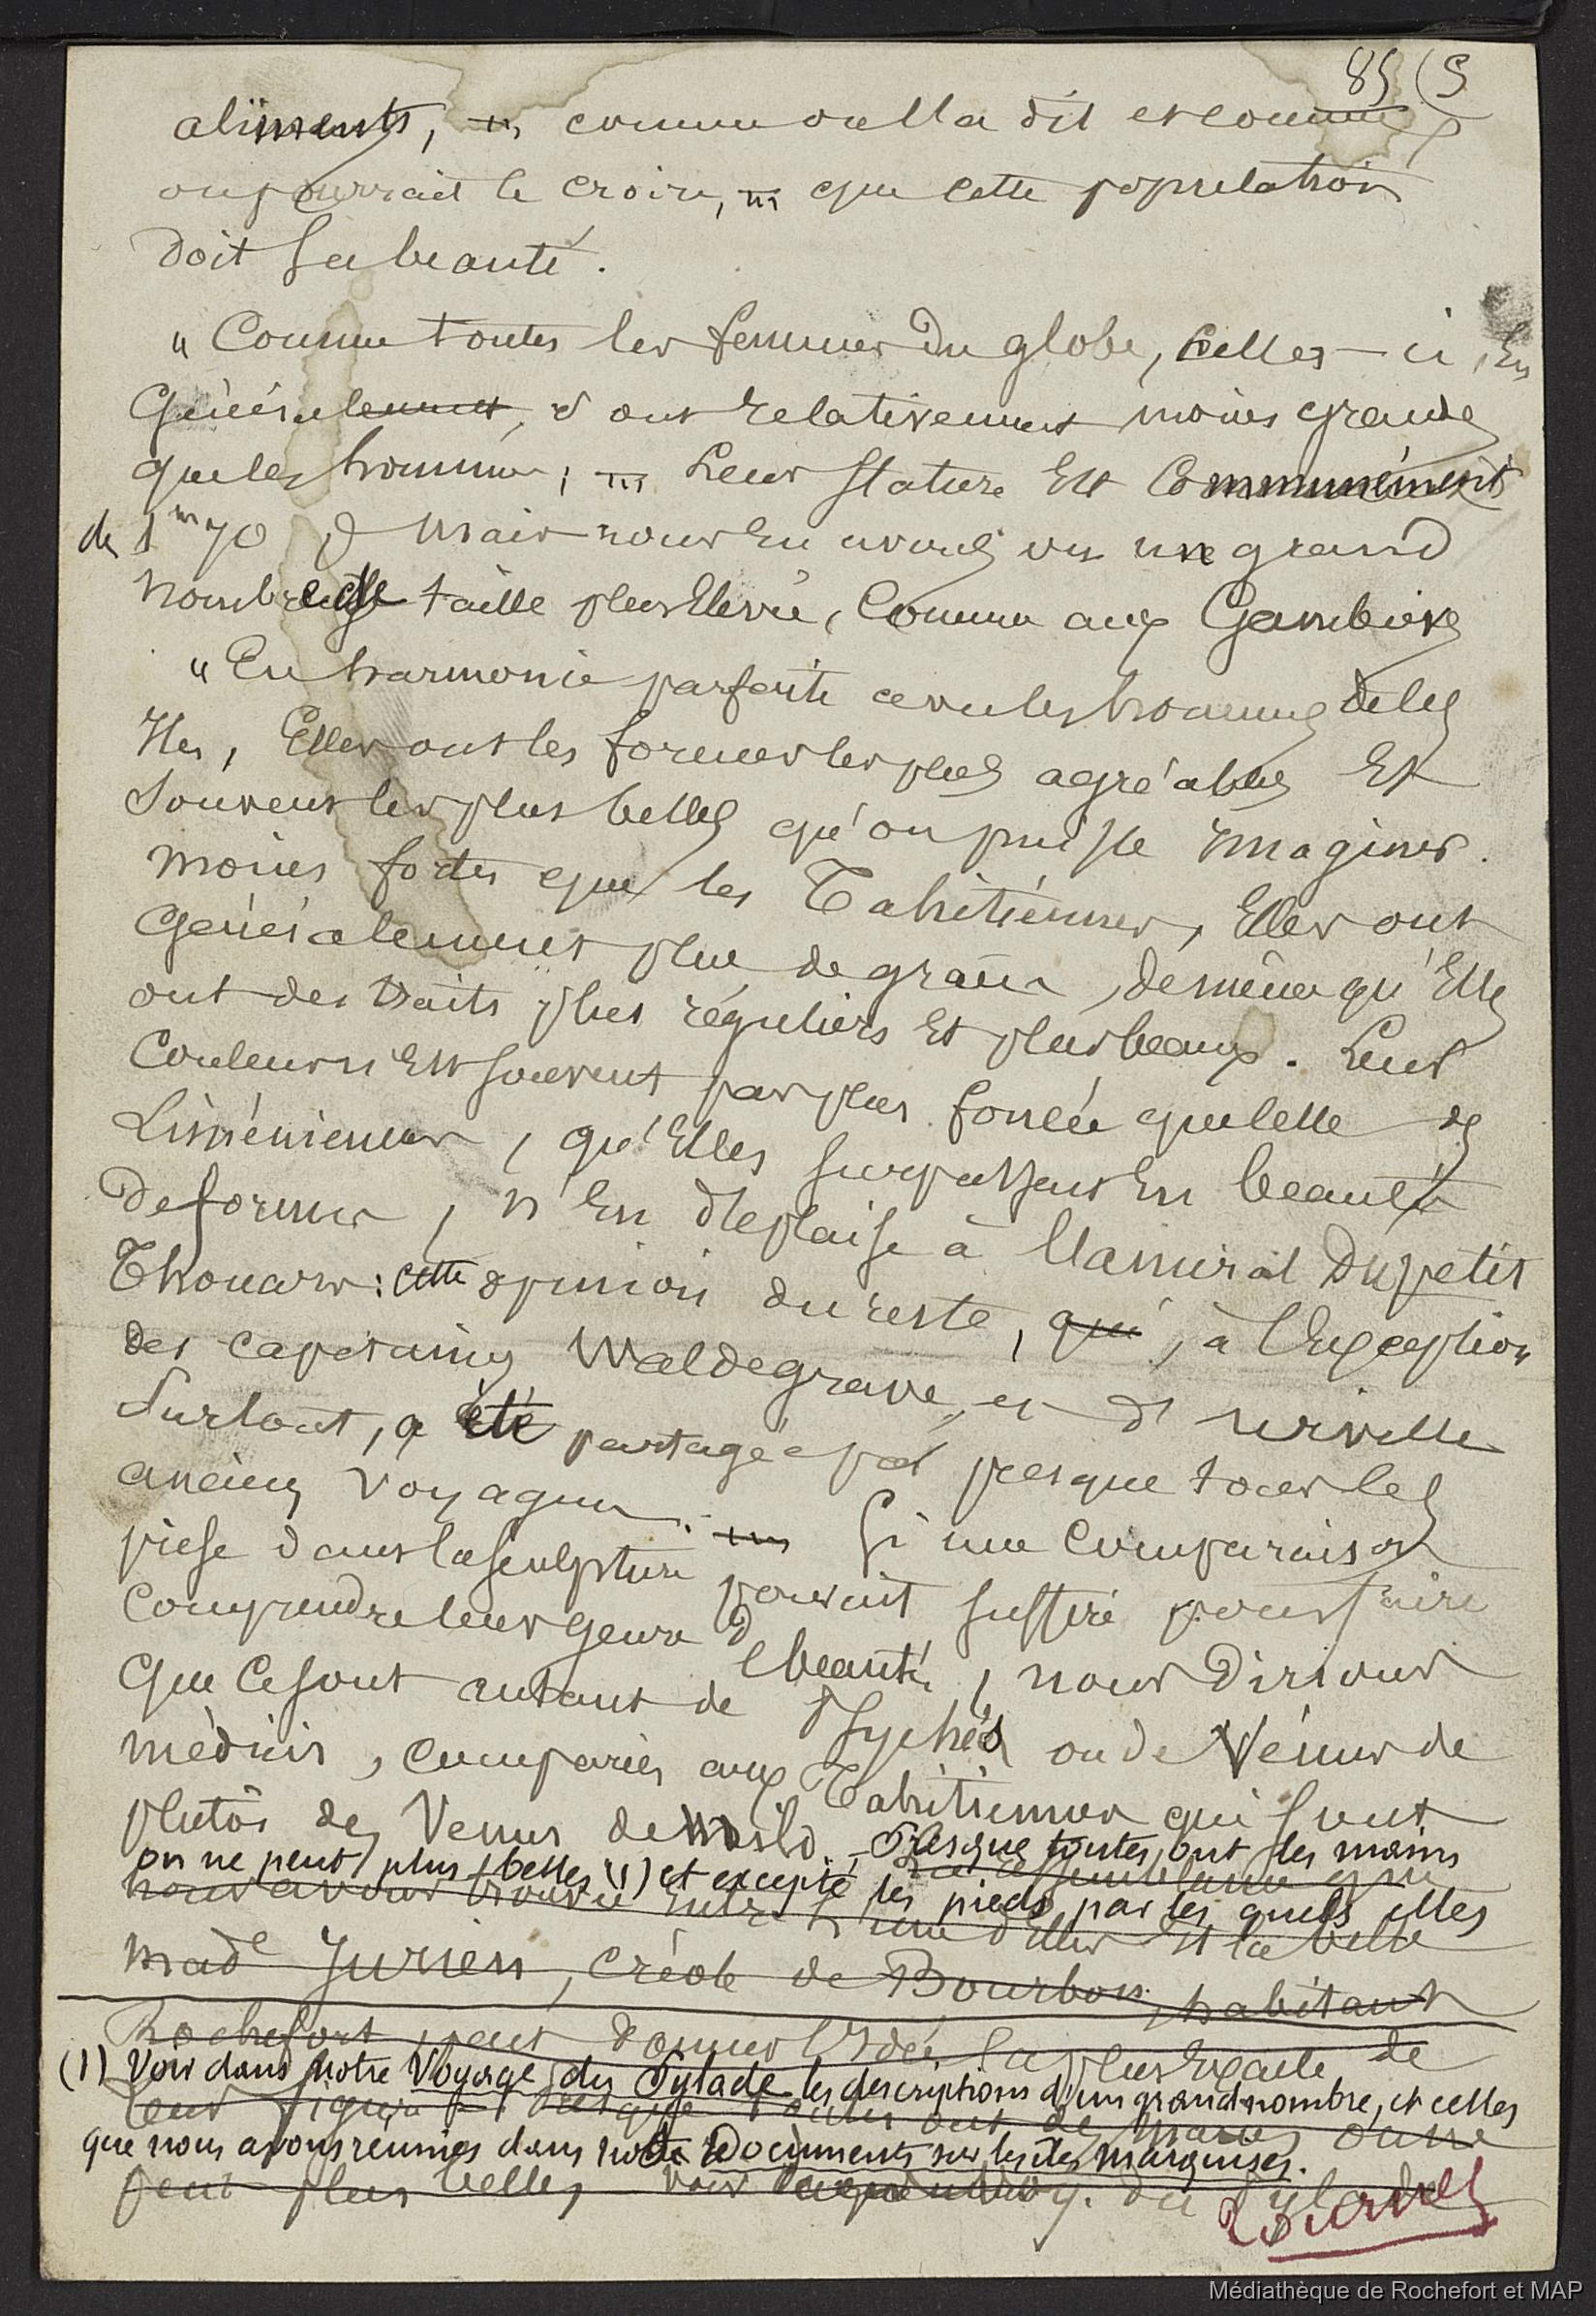 85 (5
aliments, comme on l'a dit et comme
on pourrait le croire, que cette population
doit sa beauté.
" Comme toutes les femmes du globe, celles-ci, en
général, sont relativement moins grandes
que les hommes; Leur stature est communément
de 1m 70 mais nous en avons vu un grand
nombre de taille plus élevée, comme aux Gambier
" En harmonie parfaite avec les hommes de les
Iles, Elles ont les formes les plus agréables et
souvent les plus belles qu'on puisse imaginer.
moins fortes que les Tahitiennes, Elles ont
Généralement plus de grâce, de même qu'Elles
ont des traits plus réguliers et plus beaux. Leur
Couleur n'est souvent pas plus foncée que celle des
Liméniennes, qu'Elles surpassent en beauté
de formes, n'en déplaise à l'amiral Dupetit
Thouars: cette opinion du reste, qui, à l'Exception
des capitaines Waldegrave et d'urville
Surtout, a été partagée par presque tous les
anciens voyageurs. Si une comparaison
prise dans la sculpture pouvait suffire pour faire
Comprendre leur genre de beauté, nous dirions
que ce sont autant de Psychés ou de Vénus de
médicis, comparées aux Tahitiennes qui sont
plutôt des Venus de milo. Presque toutes ont les mains
on ne peut plus belles (1) et excepté les pieds par les quels elles
nous avons trouvée entre l'une d'elles et la belle
made Jurien, créole de Bourbon, habitant
Rochefort, peut donner l'Idée la plus Exacte de
(1) Voir dans notre Voyage du Pylade les descriptions d'un grand nombre, et celles
leur figure Presque toutes ont des mains on ne
que nous avons réunies dans notre Documents sur les îles marquises.
peut plus belles, voir voy. du Pylade
Médiathèque de Rochefort et MAP